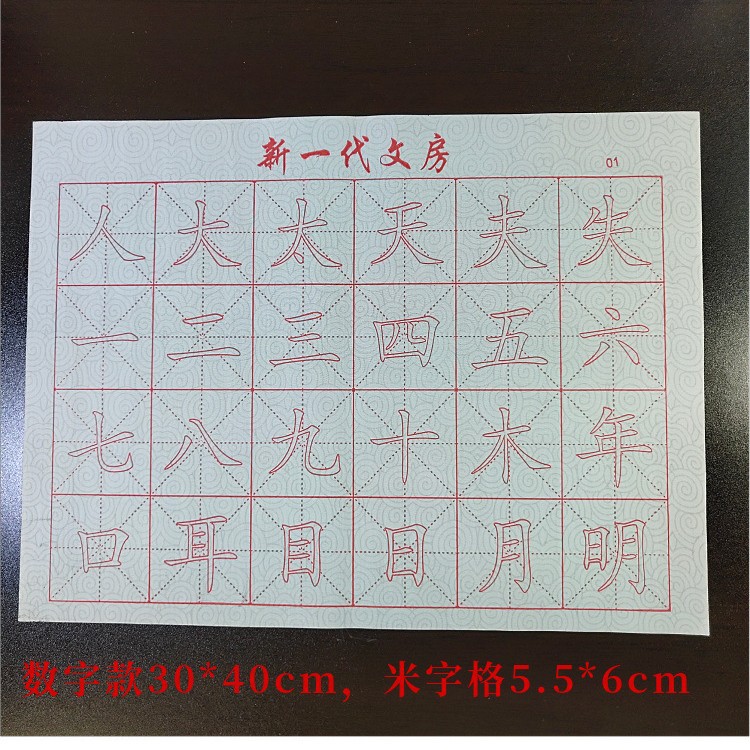 新一代文房
01
人大太天夫失
一二三四五六
七八九十木年
口耳目日月明
数字款30*40cm，米字格5.5*6cm